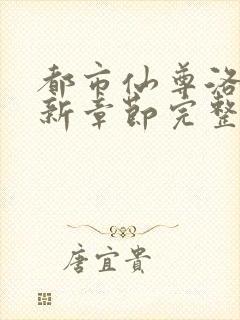 都市仙尊洛
新章节完整
唐宜贵